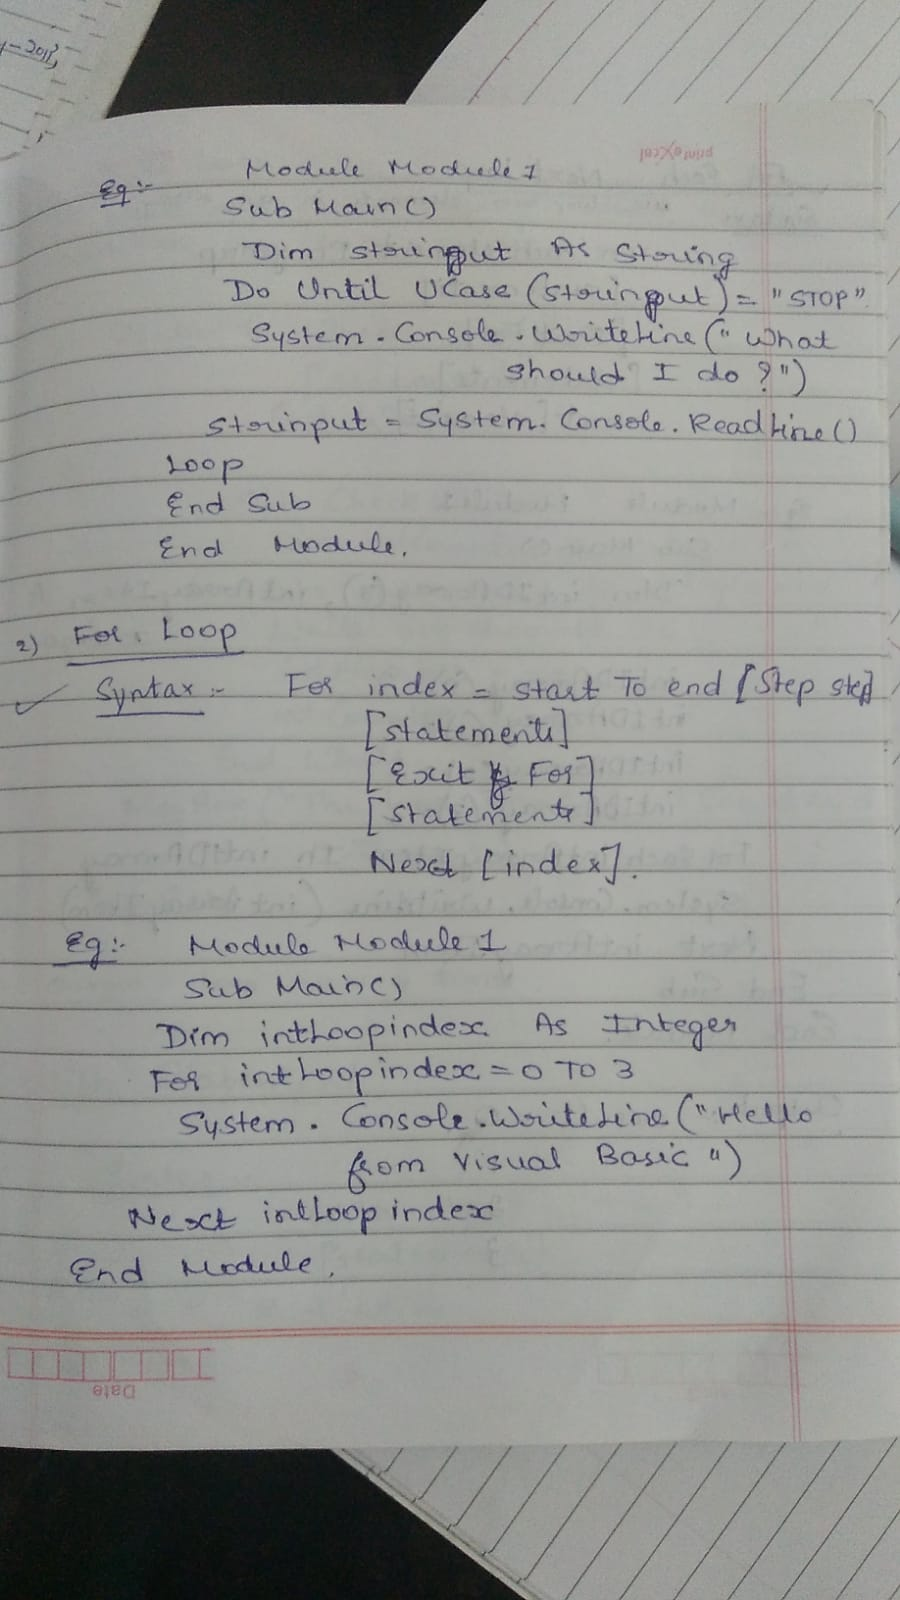 -2013,
printeXcel
Eg:-
Module Module 1
Sub Main()
Dim strinput As String
Do Until UCase (strinput) = "STOP"
System. Console. WriteLine ("What
should I do ?")
Strinput = System. Console. ReadLine ()
Loop
End Sub
End Module.
2) For Loop
Syntax :- For index = start To end [Step step]
[statements]
[Exit For]
[statements]
Next [index].
Eg:- Module Module 1
Sub Main()
Dim intLoopindex As Integer
For intLoopindex = 0 TO 3
System. Console. WriteLine ("Hello
from Visual Basic")
Next intLoopindex
End Module.
Date